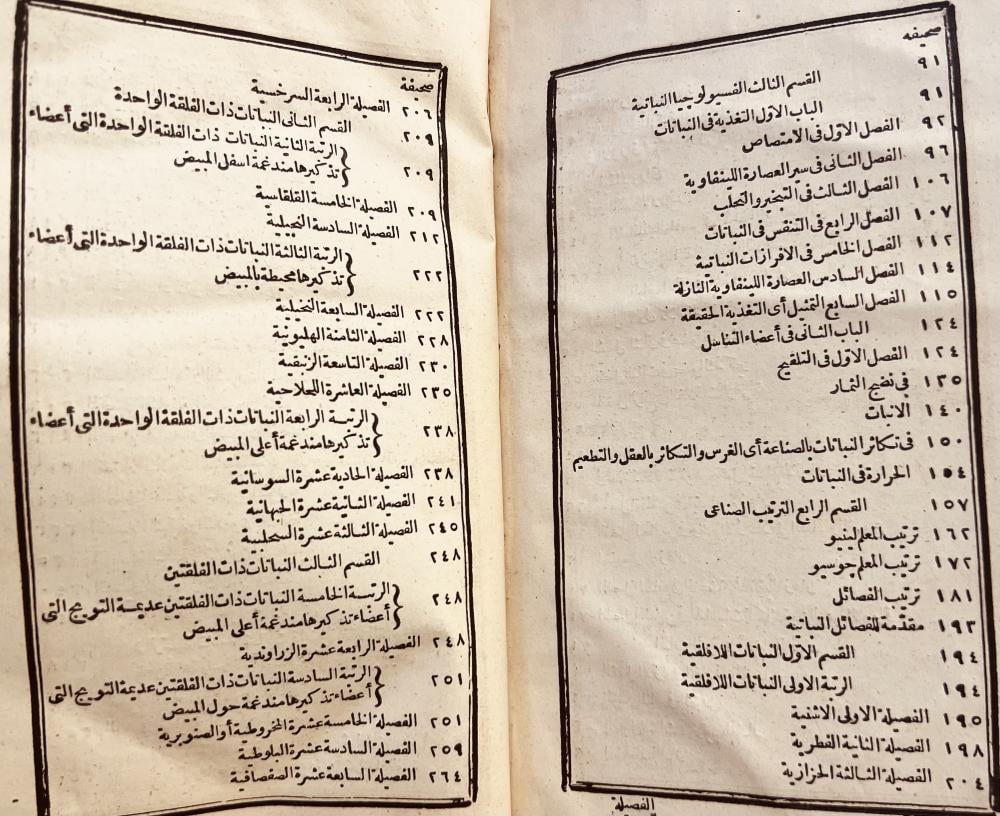 صحيفه
٩١ القسم الثالث الفسيولوجيا النباتية
٩١ الباب الاول التغذية فى النباتات
٩٢ الفصل الاول فى الامتصاص
٩٦ الفصل الثانى فى سير العصارة اللينفاوية
١٠٦ الفصل الثالث فى التبخير والتحلب
١٠٧ الفصل الرابع فى التنفس فى النباتات
١١٢ الفصل الخامس فى الافرازات النباتية
١١٤ الفصل السادس العصارة اللينفاوية النازلة
١١٥ الفصل السابع التمثيل أى التغذية الحقيقة
١٢٤ الباب الثانى فى أعضاء التناسل
١٢٤ الفصل الاول فى التلقيح
١٣٥ فى نضج الثمار
١٤٠ الانبات
١٥٠ فى تكاثر النباتات بالصناعة أى الغرس والتكاثر بالعقل والتطعيم
١٥٤ الحرارة فى النباتات
١٥٧ القسم الرابع الترتيب الصناعى
١٦٢ ترتيب المعلم لينيو
١٧٢ ترتيب المعلم چوسيو
١٨١ ترتيب الفصائل
١٩٣ مقدّمة للفصائل النباتية
١٩٤ القسم الاول النباتات اللافلقية
١٩٤ الرتبة الاولى النباتات اللافلقية
١٩٥ الفصيلة الاولى الاثنية
١٩٨ الفصيلة الثانية الفطرية
٢٠٤ الفصيلة الثالثة الحزازية
الفصيلة
صحيفة
٢٠٦ الفصيلة الرابعة السرخسية
٢٠٩ القسم الثانى النباتات ذات الفلقة الواحدة
٢٠٩ الرتبة الثانية النباتات ذات الفلقة الواحدة التى أعضاء
تذكيرها مندغمة اسفل المبيض
٢٠٩ الفصيلة الخامسة القلقاسية
٢١٢ الفصيلة السادسة النجيلية
٢٢٢ الرتبة الثالثة النباتات ذات الفلقة الواحدة التى أعضاء
تذكيرها محيطة بالمبيض
٢٢٢ الفصيلة السابعة النخيلية
٢٢٨ الفصيلة الثامنة الهليونية
٢٣٠ الفصيلة التاسعة الزنبقية
٢٣٥ الفصيلة العاشرة اللحلاحية
٢٣٨ الرتبة الرابعة النباتات ذات الفلقة الواحدة التى أعضاء
تذكيرها مندغمة أعلى المبيض
٢٣٨ الفصيلة الحادية عشرة السوسانية
٢٤١ الفصيلة الثانية عشرة الحبهانية
٢٤٥ الفصيلة الثالثة عشرة السحلبية
٢٤٨ القسم الثالث النباتات ذات الفلقتين
٢٤٨ الرتبة الخامسة النباتات ذات الفلقتين عديمة التويج التى
أعضاء تذكيرها مندغمة أعلى المبيض
٢٤٨ الفصيلة الرابعة عشرة الزراوندية
٢٥١ الرتبة السادسة النباتات ذات الفلقتين عديمة التويج التى
أعضاء تذكيرها مندغمة حول المبيض
٢٥١ الفصيلة الخامسة عشرة المخروطية أو الصنوبرية
٢٥٩ الفصيلة السادسة عشرة البلوطية
٢٦٤ الفصيلة السابعة عشرة الصفصافية